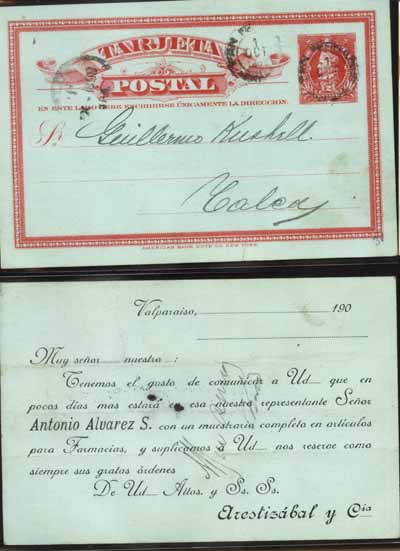 TARJETA
POSTAL
EN ESTE LADO DEBE ESCRIBIRSE ÚNICAMENTE LA DIRECCION:
Sr. Guillermo
Talca
AMERICAN BANK NOTE CO. NEW YORK.
Valparaíso, 190
Muy señor nuestro:
Tenemos el gusto de comunicar a Ud que en
pocos días mas estará en esa nuestro representante Señor
Antonio Alvarez S. con un muestrario completo en artículos
para Farmacias, y suplicamos a Ud nos reserve como
siempre sus gratas órdenes
De Ud Attos. y Ss. Ss.
Arestizábal y Cía